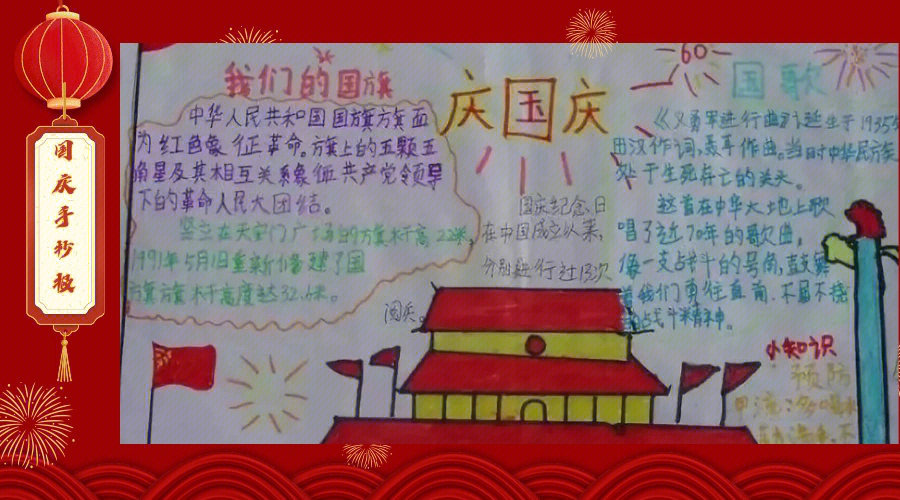 国庆手抄报
我们的国旗
中华人民共和国国旗旗面
为红色象征革命。旗上的五颗五
角星及其相互关系象征共产党领导
下的革命人民大团结。
竖立在天安门广场的旗杆高22米,
1991年5月1日重新修建了国
旗旗杆高度达32.6米。
庆国庆
国庆纪念日
在中国成立以来,
分别进行过13次
阅兵。
60
国歌
《义勇军进行曲》诞生于1935年
田汉作词,聂耳作曲。当时中华民族
处于生死存亡的关头。
这首在中华大地上歌
唱了近70年的歌曲,
像一支战斗的号角,鼓舞
着我们勇往直前、不屈不挠
的战斗精神。
小知识
预防
甲流:多喝水